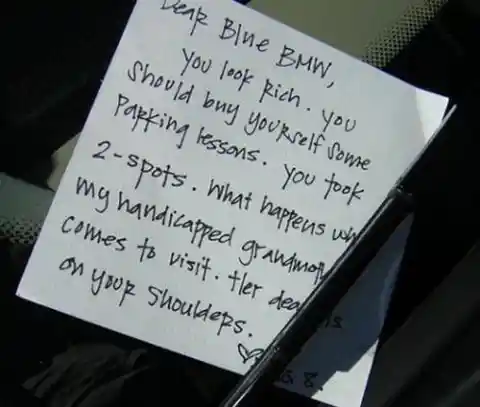 Dear Blue BMW,
You look rich. You
should buy yourself some
parking lessons. You took
2-spots. What happens
my handicapped
comes to visit. Her
on your shoulders.
8.